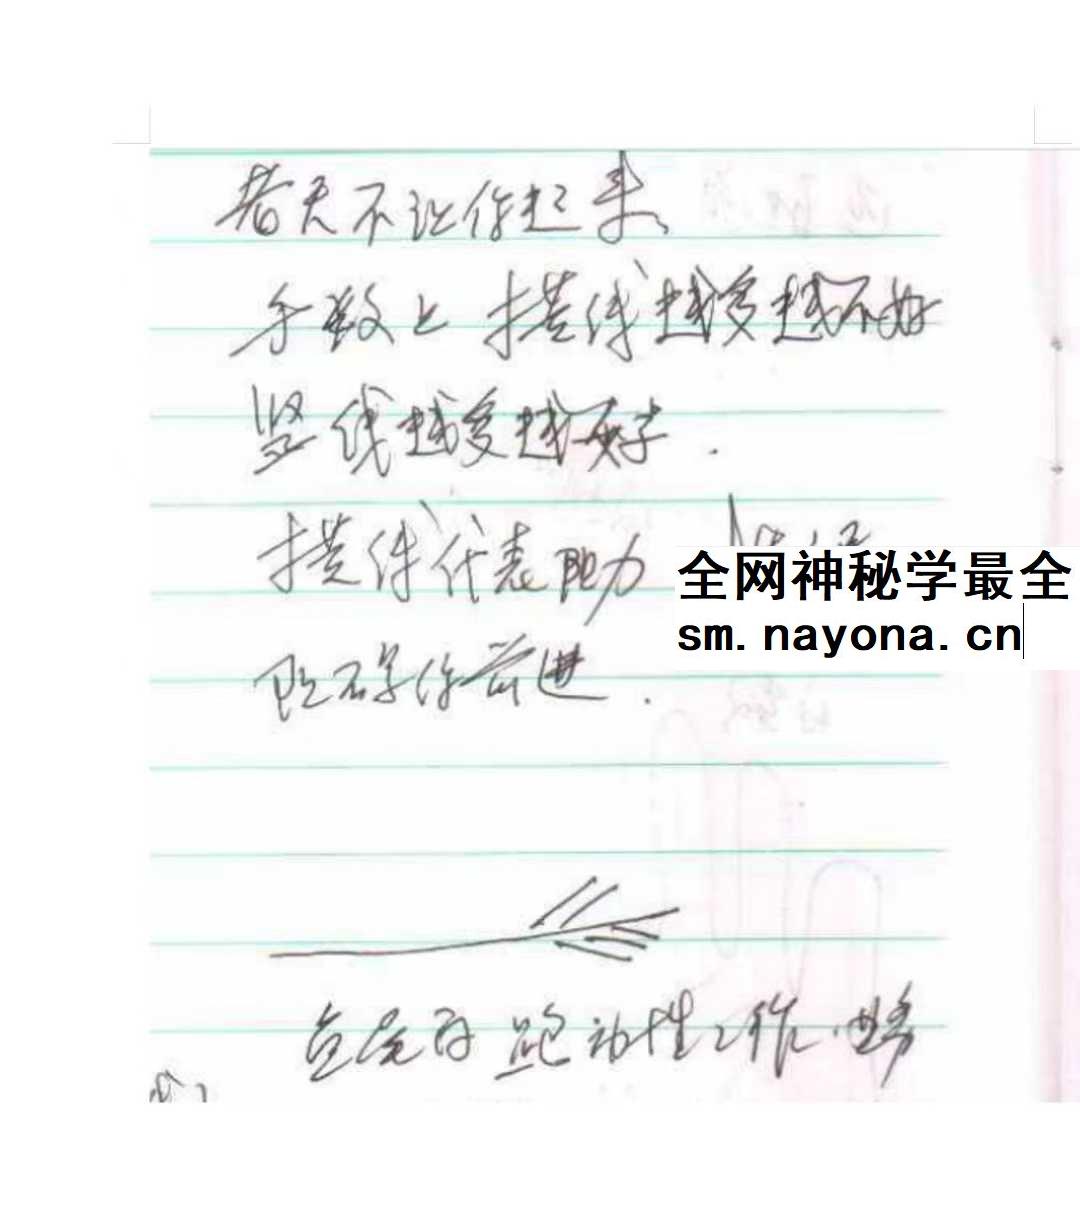 老天不让你起来
手数上 横线越多越不好
竖线越多越好.
横线代表阻力
全网神秘学最全
sm.nayona.cn
阻碍你前进.
跑动性工作